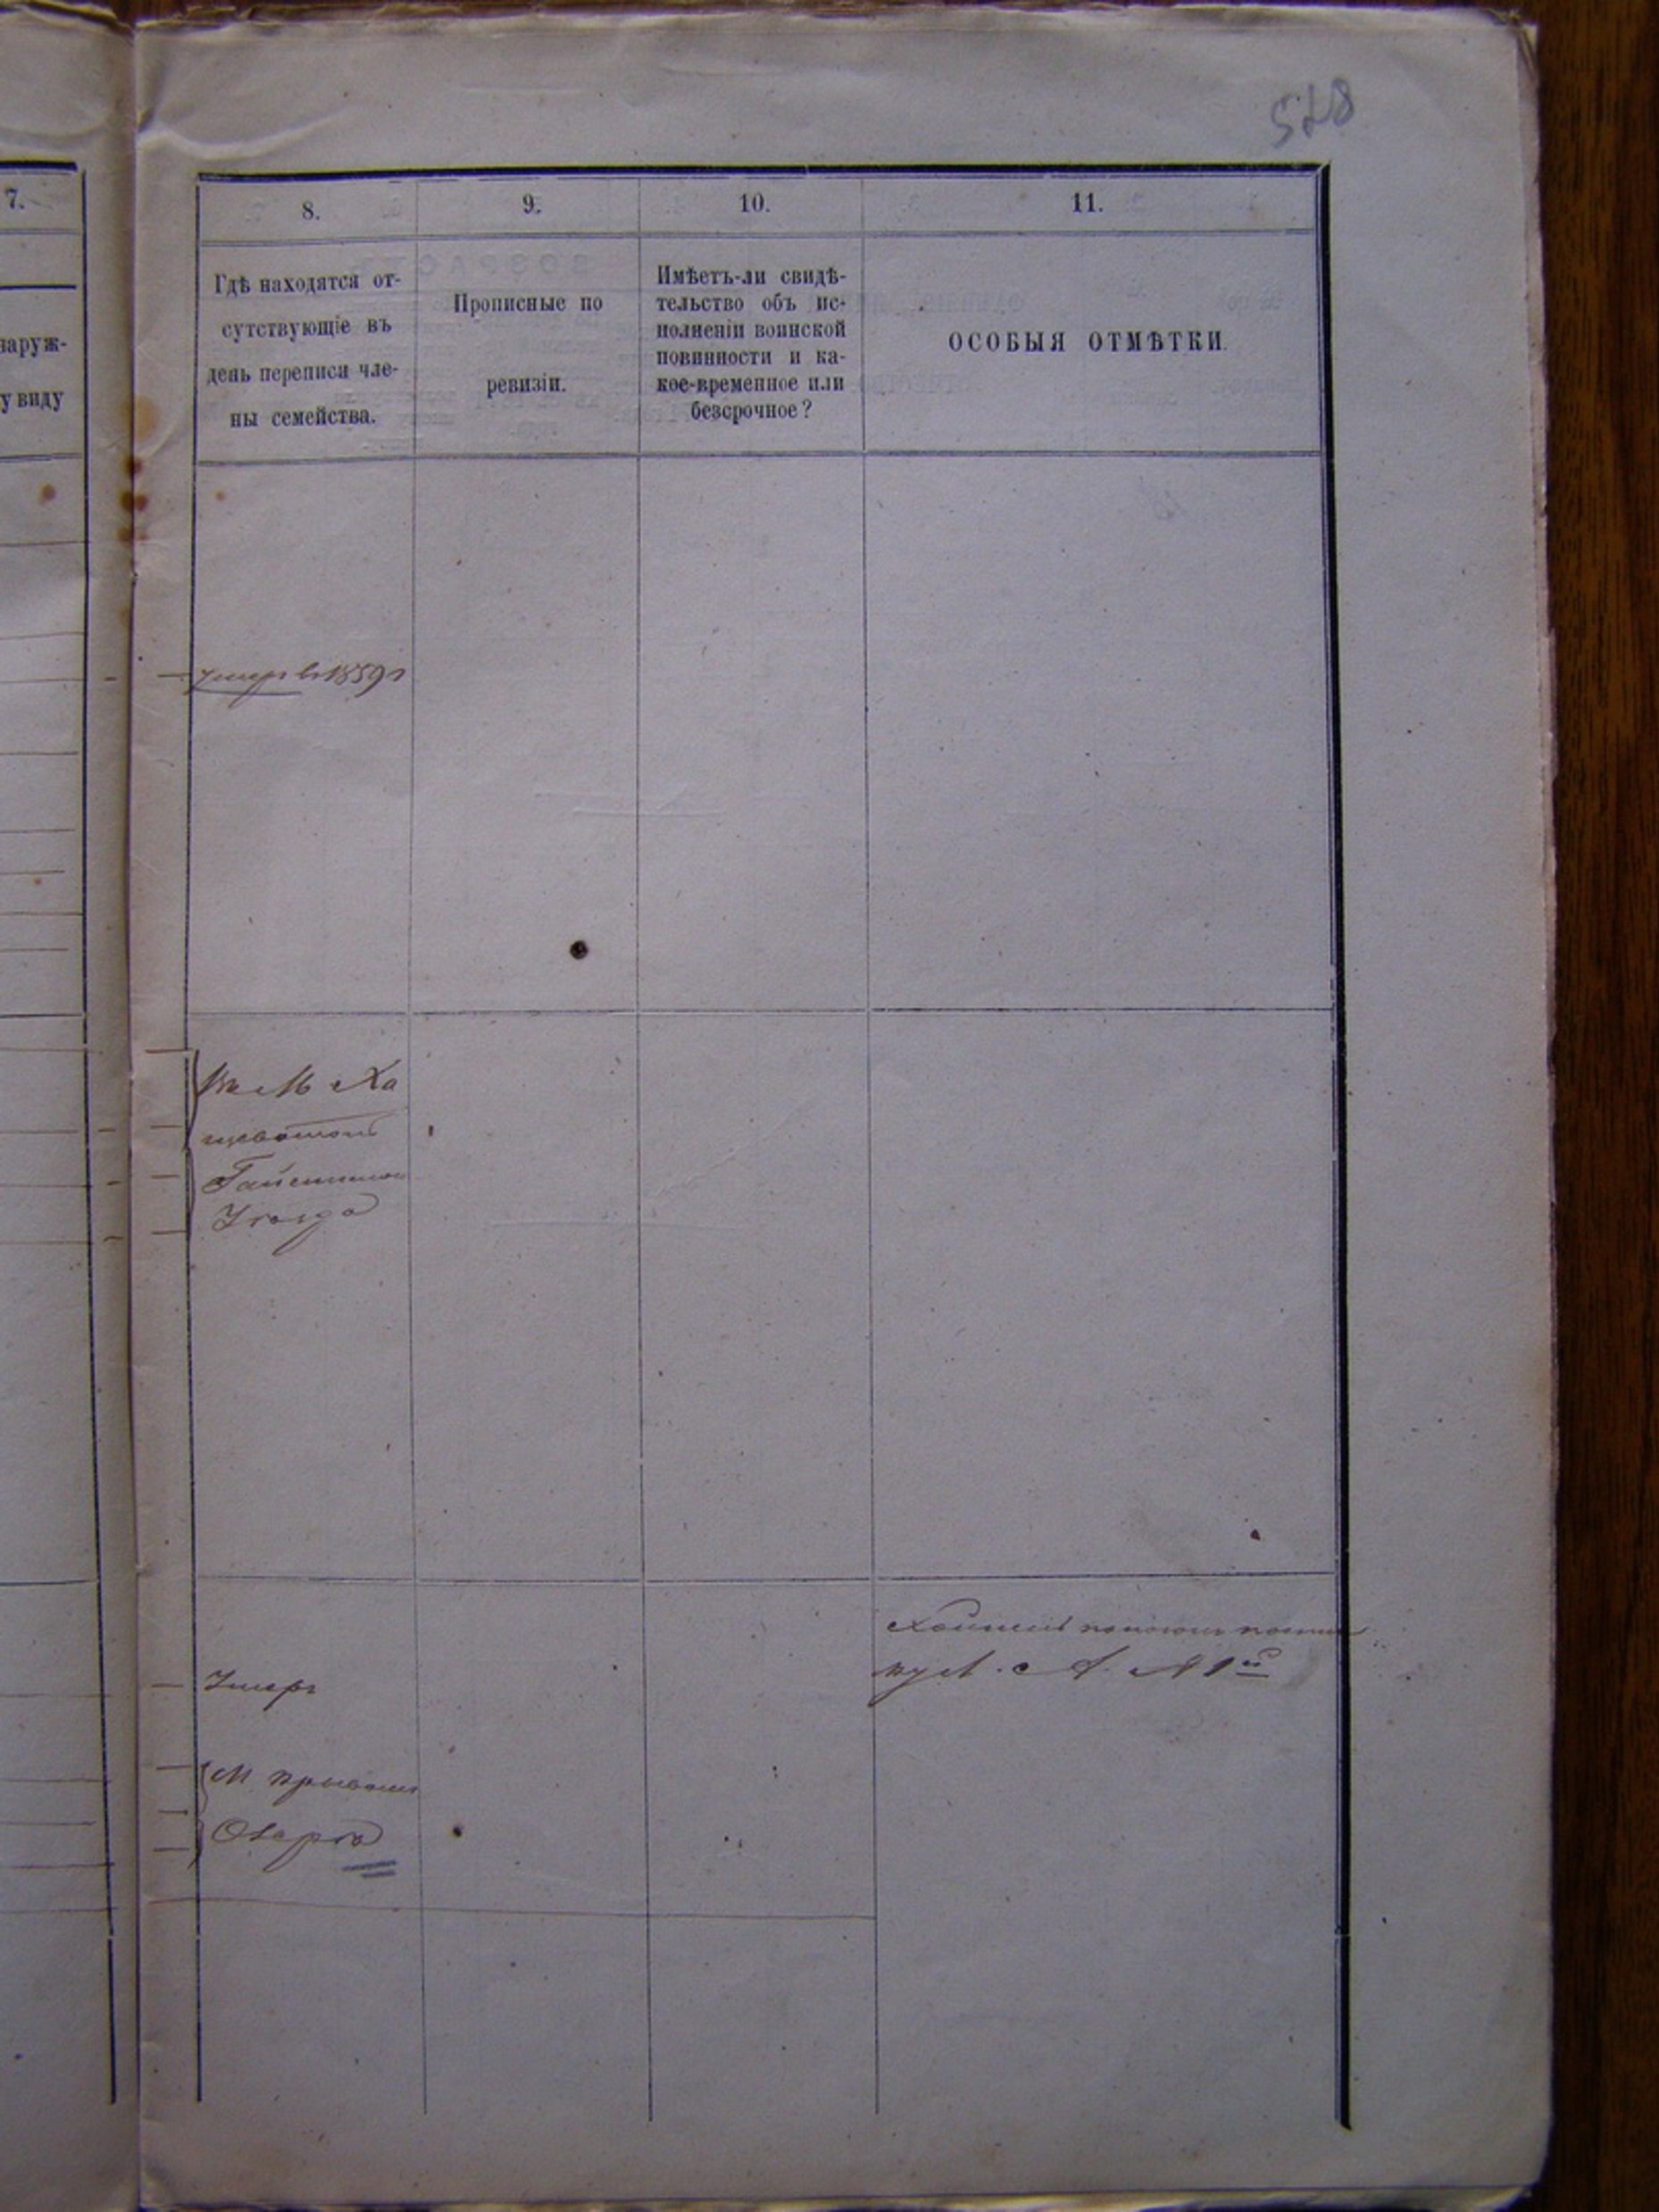 578
7.
8.
9.
10.
11.
наруж-
у виду
Гдѣ находятся от-
сутствующіе въ
день переписи чле-
ны семейства.
Прописные по
ревизіи.
Имѣетъ-ли свидѣ-
тельство объ ис-
полненіи воинской
повинности и ка-
кое-временное или
безсрочное?
ОСОБЫЯ ОТМѢТКИ.
Умеръ въ 1859 г
Въ М Ха
щеватомъ
Гайсинскаго
Уѣзда
Умеръ
М
Озеро